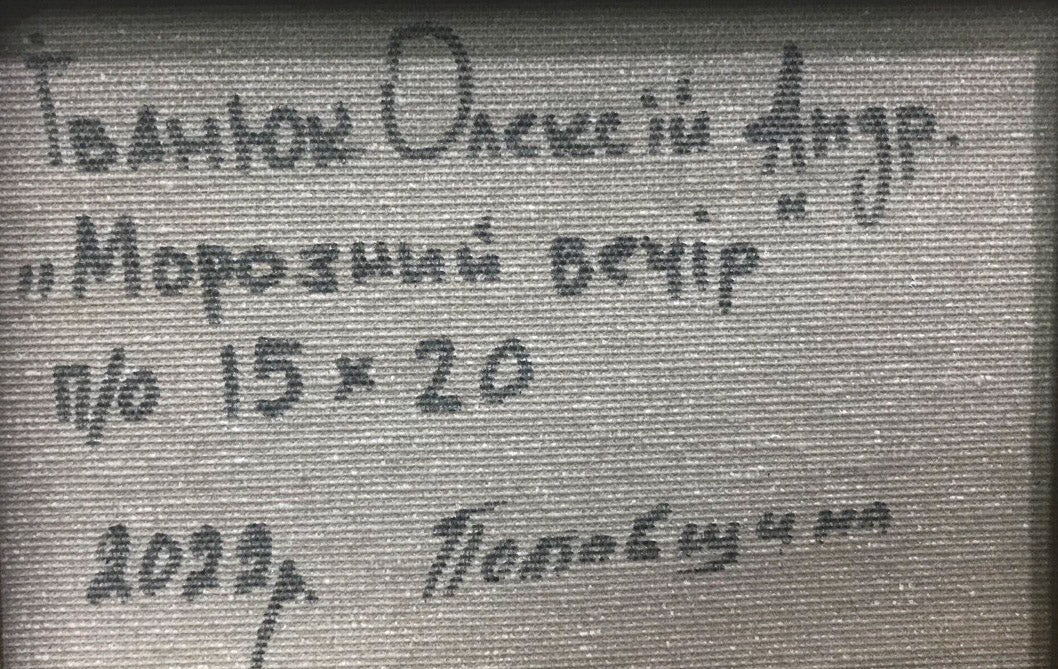 Іванюк Олексій Андр.
„Морозний вечір"
п/о 15 × 20
2022р